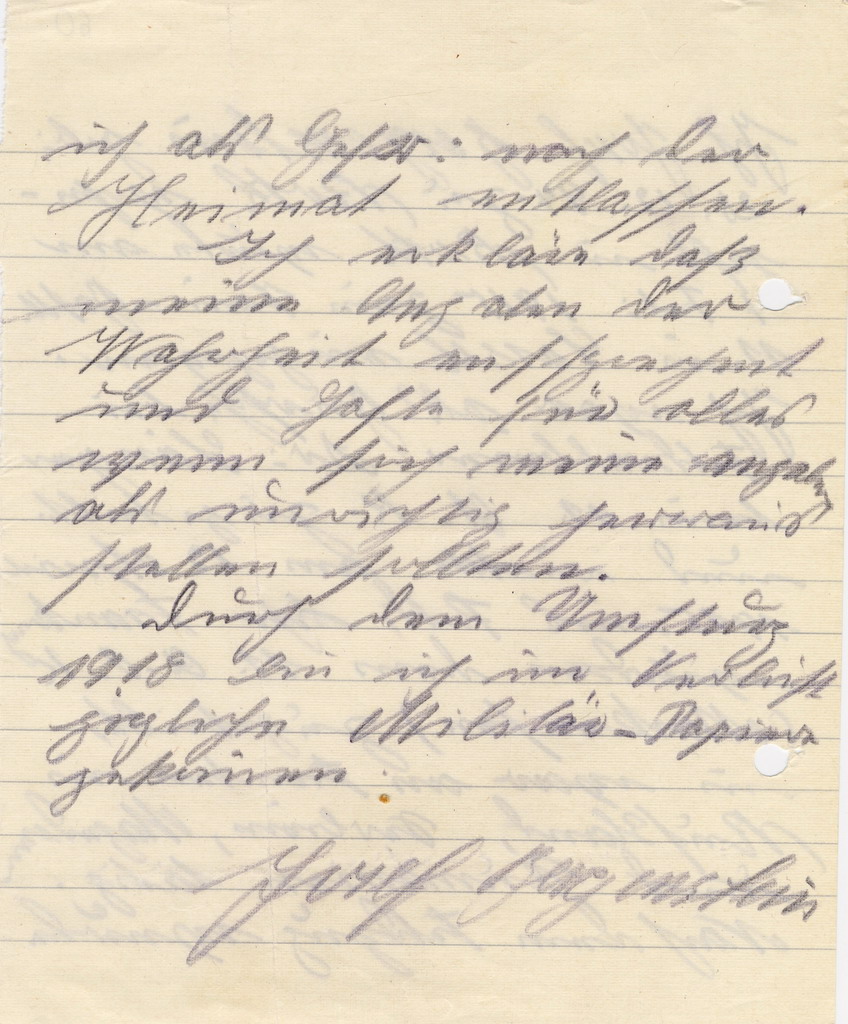 ich als Gefr: nach der
Heimat entlassen.
Ich erkläre daß
meine Angaben der
Wahrheit entsprechent
und hafte für alles
wenn sich meine angaben
als unrichtig herraus
stellen sollten.
Durch dem Umsturz
1918 bin ich im Verlust
jeglicher Militär-Papiere
gekommen.
Josef Bergenstein